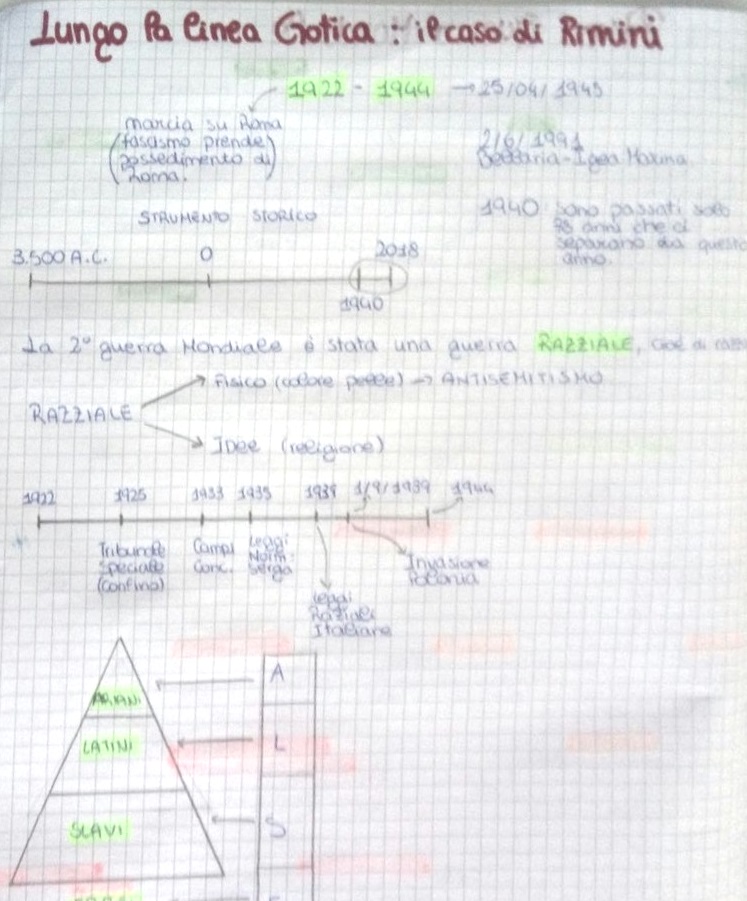 Lungo la linea Gotica: il caso di Rimini
1922 - 1944 → 25/04/1945
marcia su Roma
(fascismo prende
possedimento di
Roma.)
2/6/1991
Bellaria-Igea Marina
1940 sono passati solo
anni che ci
separano da questo
anno.
STRUMENTO STORICO
3.500 A.C. 0 2018
1940
La 2° guerra Mondiale è stata una guerra RAZZIALE, cioè di
Fisico (colore pelle) → ANTISEMITISMO
RAZZIALE
Idee (religione)
1922 1925 1933 1935 1/9/1939 1944
Tribunale
Speciale
(confino)
Campi
Conc.
Leggi
Norim
berga
Invasione
Polonia
Leggi
Razziali
Italiane
ARIANI
A
LATINI
L
SLAVI
S